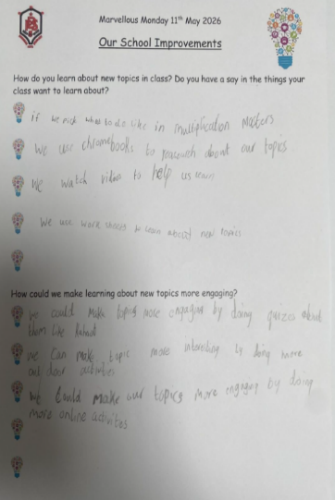 Marvellous Monday 11th May 2026
Our School Improvements
How do you learn about new topics in class? Do you have a say in the things your
class want to learn about?
if we not what to do like in multiplication matters
We use chromebooks to research about our topics
We watch video to help us learn
We use work sheets to learn about new topics
How could we make learning about new topics more engaging?
We could make topics more engaging by doing quizes about
them like
we can make topic more by doing more
out door activities
We Could make our topics more engaging by doing
more online activites